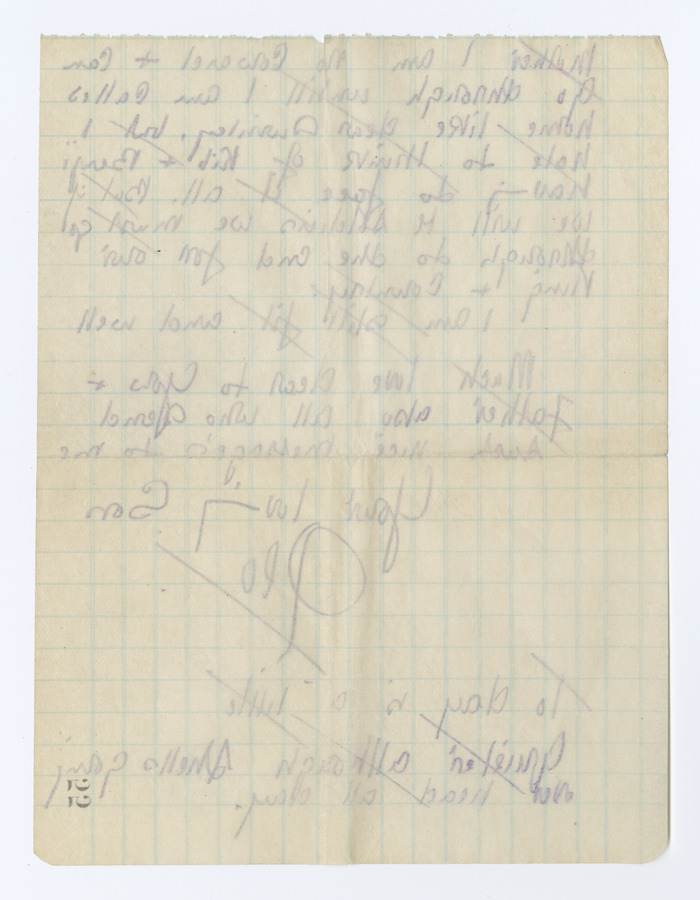 Mother I am no Coward + Can
go through untill I am Called
home like dear Quinley, but I
hate to think of Kit + Benji
having to face it all. But if
we will be soldiers we must go
through to the end for our
King + Country.
I am still fit and well
Much love dear to you +
Father also all who send
such nice messages to me
Your loving Son
Geo
To day is a little
Quieter although shells going
over head all day.
25